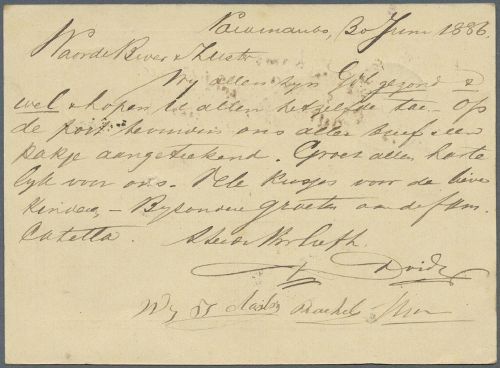 Paramaribo, 30 Juni 1886.
Waarde Broer & Zuster
Wij allen zijn God gezond &
wel & hopen U allen hetzelfde toe. Op
de post kunnen ons allen brief & een
pakje aangetekend. Groet allen harte
lijk voor ons. Vele kusjes voor de lieve
kinderen, - Bijzondere groeten aan de fam.
Catella.
David
Wij Rachel